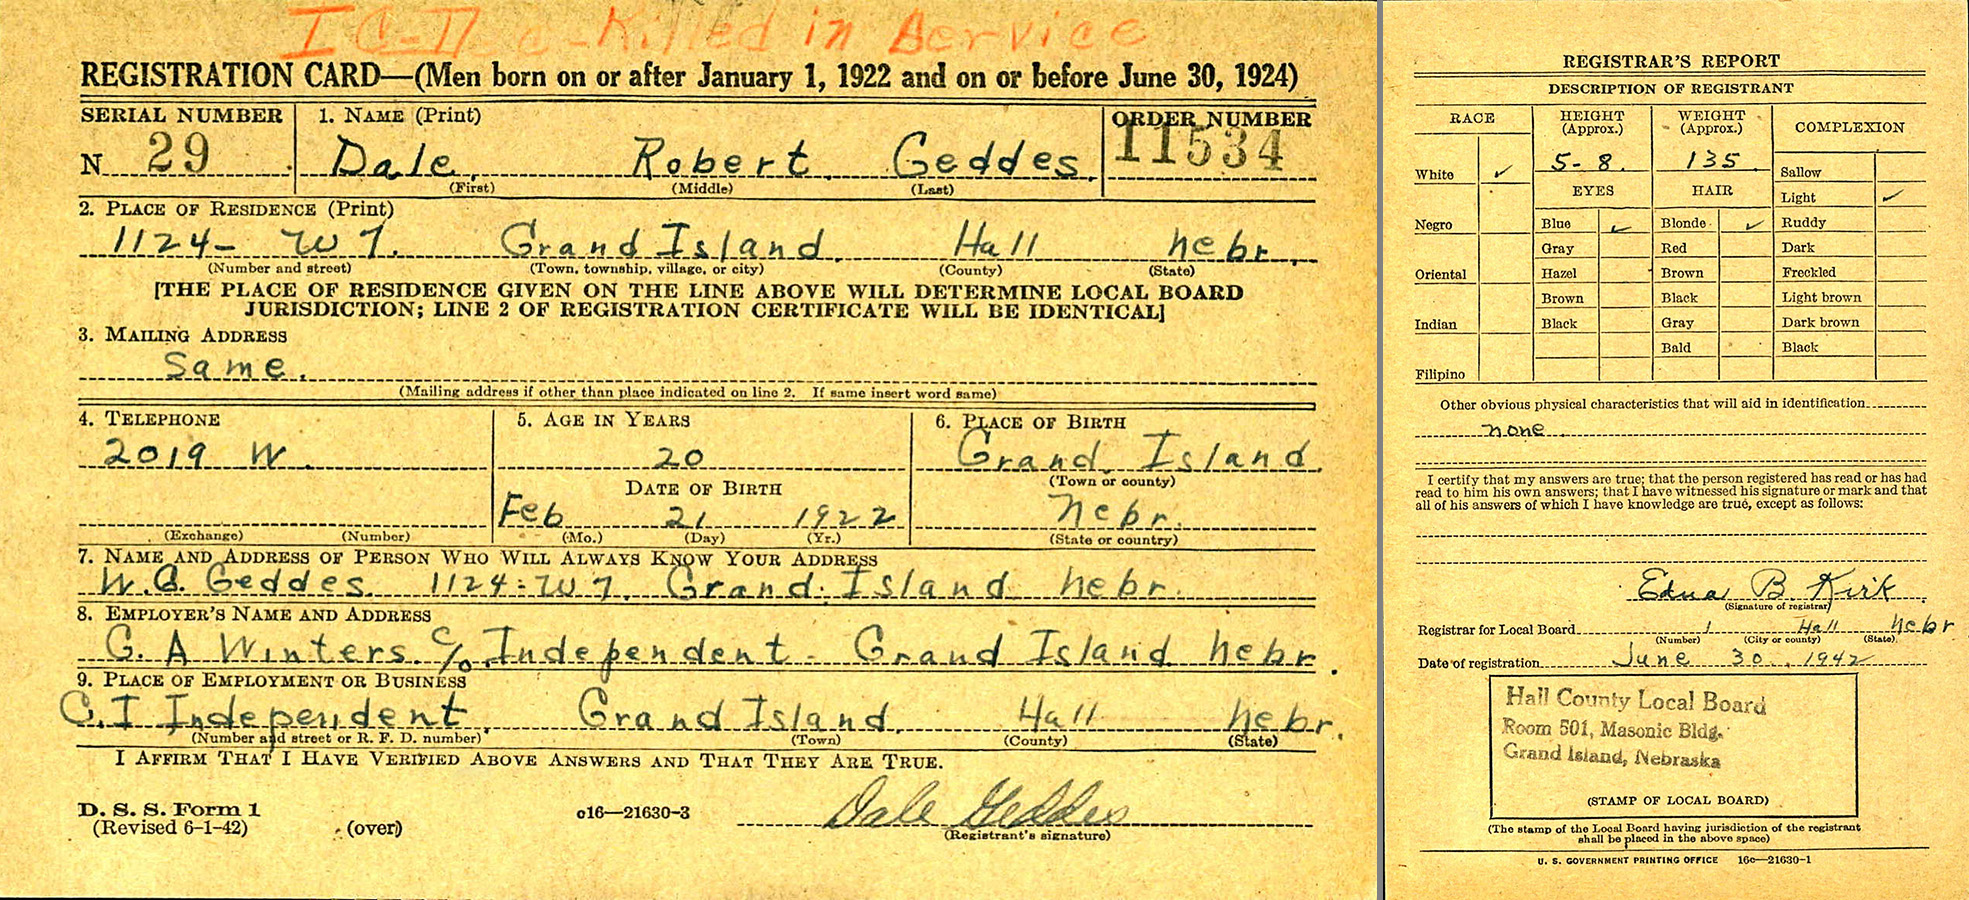 I C-II-c-Killed in Service
REGISTRATION CARD—(Men born on or after January 1, 1922 and on or before June 30, 1924)
SERIAL NUMBER
1. NAME (Print)
ORDER NUMBER
N 29
Dale Robert Geddes
11534
(First) (Middle) (Last)
2. PLACE OF RESIDENCE (Print)
1124- W 7. Grand Island Hall Nebr.
(Number and street) (Town, township, village, or city) (County) (State)
[THE PLACE OF RESIDENCE GIVEN ON THE LINE ABOVE WILL DETERMINE LOCAL BOARD
JURISDICTION; LINE 2 OF REGISTRATION CERTIFICATE WILL BE IDENTICAL]
3. MAILING ADDRESS
Same.
(Mailing address if other than place indicated on line 2. If same insert word same)
4. TELEPHONE
5. AGE IN YEARS
6. PLACE OF BIRTH
2019 W.
20
Grand Island
(Town or county)
DATE OF BIRTH
Feb 21 1922
Nebr.
(Exchange) (Number)
(Mo.) (Day) (Yr.)
(State or country)
7. NAME AND ADDRESS OF PERSON WHO WILL ALWAYS KNOW YOUR ADDRESS
W.G. Geddes. 1124-W 7. Grand Island Nebr.
8. EMPLOYER'S NAME AND ADDRESS
G. A Winters. c/o Independent - Grand Island Nebr.
9. PLACE OF EMPLOYMENT OR BUSINESS
G.I Independent. Grand Island Hall Nebr.
(Number and street or R. F. D. number) (Town) (County) (State)
I AFFIRM THAT I HAVE VERIFIED ABOVE ANSWERS AND THAT THEY ARE TRUE.
D. S. S. Form 1
(Revised 6-1-42) (over)
c16—21630-3
Dale Geddes
(Registrant's signature)
REGISTRAR'S REPORT
DESCRIPTION OF REGISTRANT
RACE
HEIGHT
(Approx.)
WEIGHT
(Approx.)
COMPLEXION
5-8.
135
White ✓
Sallow
EYES
HAIR
Light ✓
Negro
Blue ✓
Blonde ✓
Ruddy
Gray
Red
Dark
Oriental
Hazel
Brown
Freckled
Brown
Black
Light brown
Indian
Black
Gray
Dark brown
Bald
Black
Filipino
Other obvious physical characteristics that will aid in identification
none
I certify that my answers are true; that the person registered has read or has had
read to him his own answers; that I have witnessed his signature or mark and that
all of his answers of which I have knowledge are true, except as follows:
Edna B. Kirk
(Signature of registrar)
Registrar for Local Board 1 Hall Nebr
(Number) (City or county) (State)
Date of registration June 30, 1942
Hall County Local Board
Room 501, Masonic Bldg.
Grand Island, Nebraska
(STAMP OF LOCAL BOARD)
(The stamp of the Local Board having jurisdiction of the registrant
shall be placed in the above space)
U. S. GOVERNMENT PRINTING OFFICE 16c—21630-1